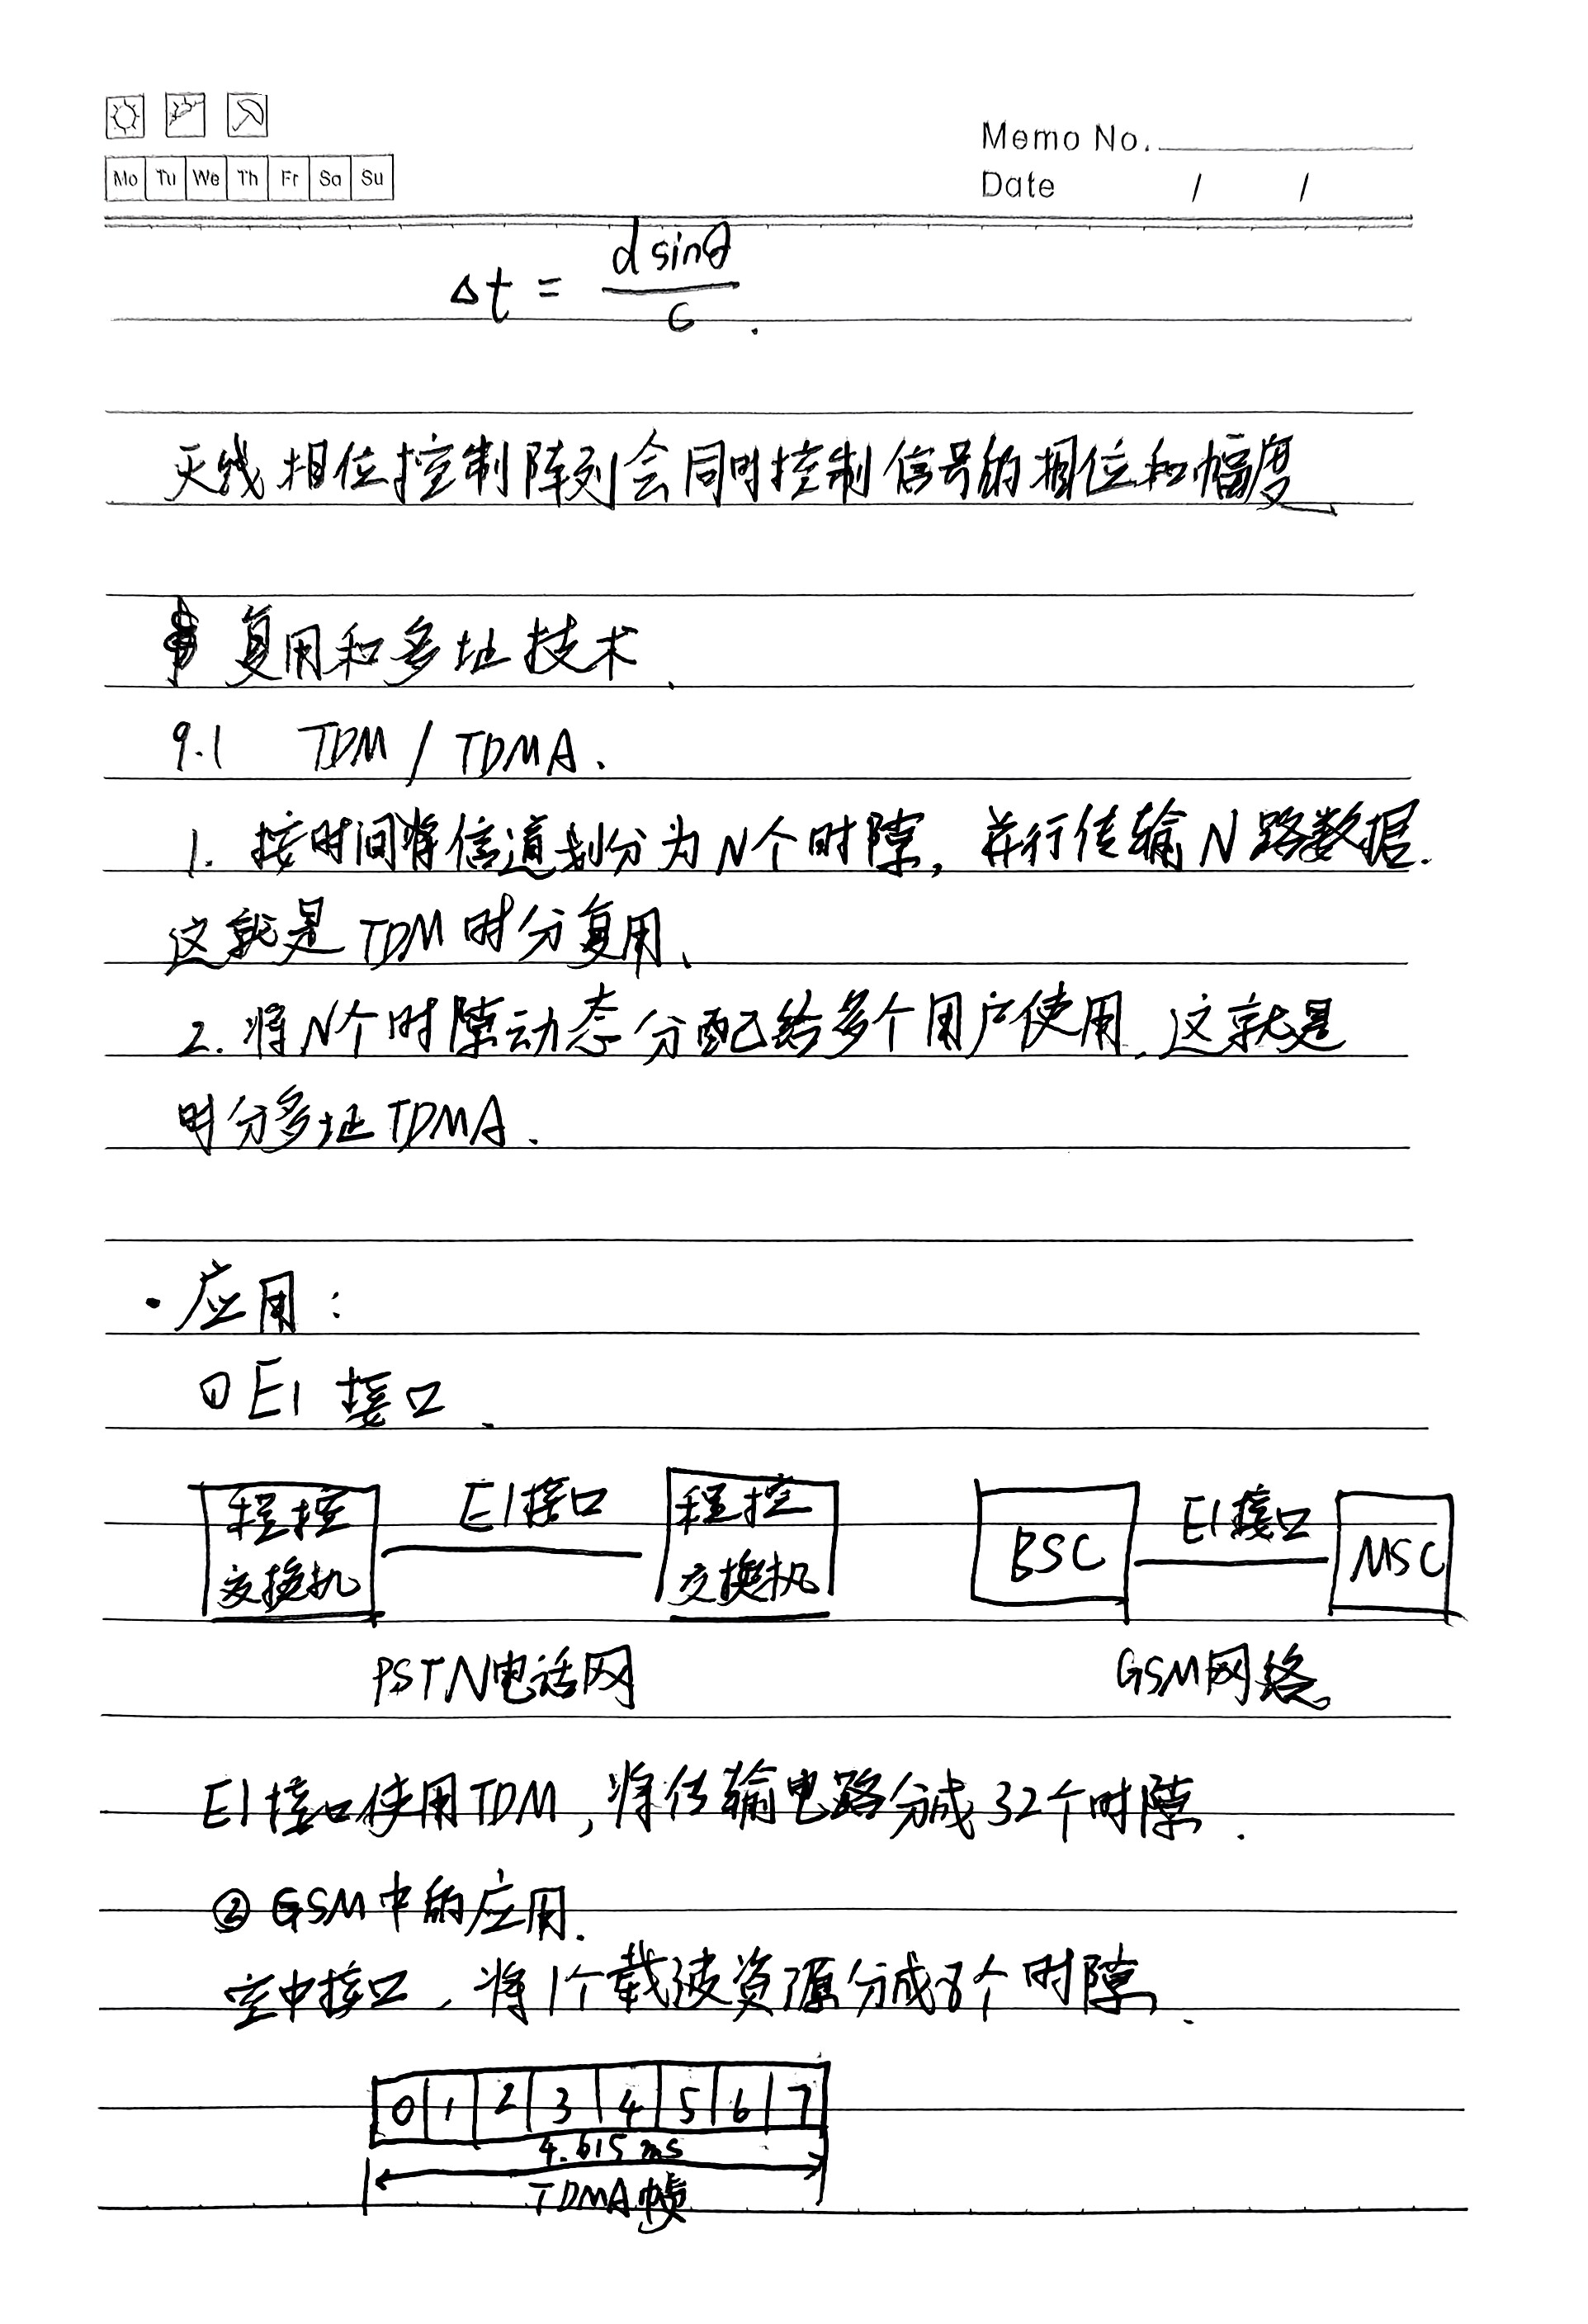 Memo No.
Mo Tu We Th Fr Sa Su
Date / /
Δt = d sinθ / c .
天线相位控制阵列会同时控制信号的相位和幅度、
复用和多址技术.
9.1 TDM / TDMA.
1. 按时间将信道划分为N个时隙, 并行传输N路数据.
这就是TDM时分复用、
2. 将N个时隙动态分配给多个用户使用, 这就是
时分多址TDMA.
·应用:
①E1接口.
程控 E1接口 程控 BSC E1接口 MSC
交换机 交换机
PSTN电话网 GSM网络
E1接口使用TDM, 将传输电路分成32个时隙.
②GSM中的应用.
空中接口, 将1个载波资源分成8个时隙.
0 1 2 3 4 5 6 7
4.615 ms
TDMA帧